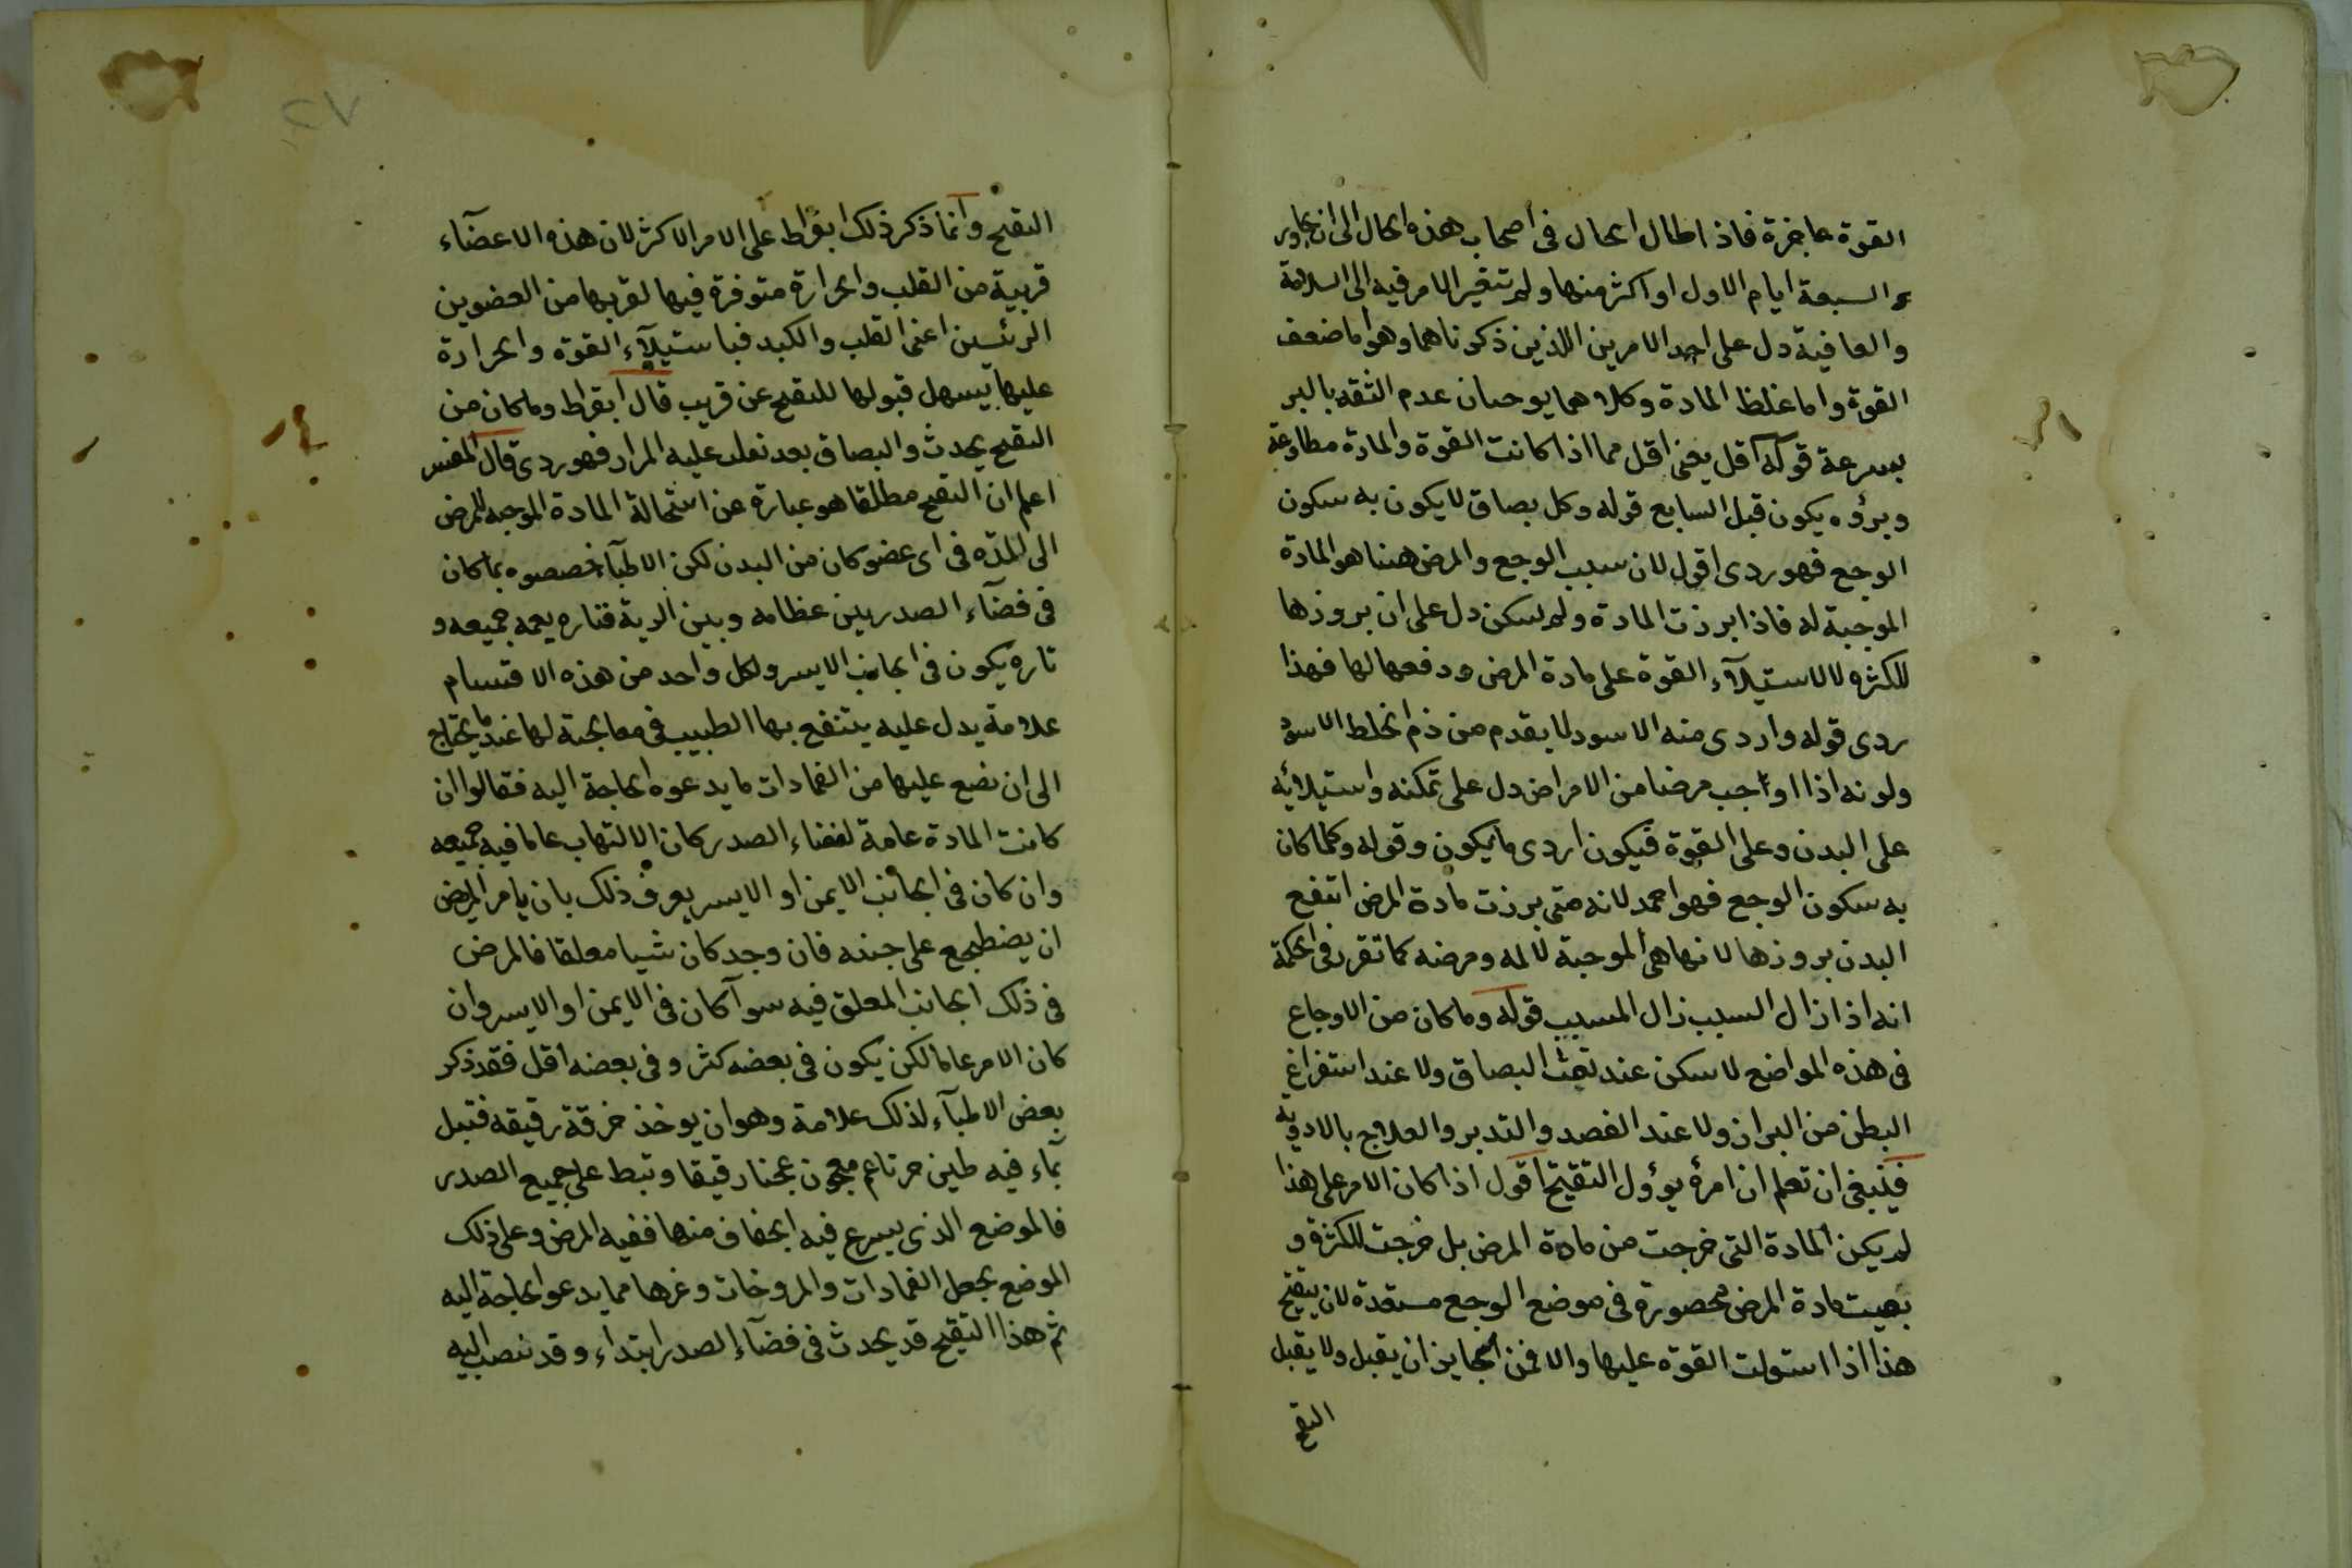 القوة عاجزة فاذا طال الحال فى اصحاب هذه الحال الى ان يجاوز
السبعة ايام الاول او اكثر منها ولم تتغير الامر فيه الى السلامة
والعافية دل على احد الامرين اللذين ذكرناهما وهو اما ضعف
القوة واما غلظ المادة وكلاهما يوجبان عدم الثقه بالبر
بسرعة قوله اقل يعنى اقل مما اذا كانت القوة والمادة مطاوعة
وبرؤه يكون قبل السابع قوله وكل بصاق لا يكون به سكون
الوجع فهو ردى اقول لان سبب الوجع والمرض هننا هو المادة
الموجبة له فاذا برزت المادة ولم يسكن دل على ان بروزها
للكثره لا لاستيلآء القوة على مادة المرض ودفعها لها فهذا
ردى قوله واردى منه الاسود لما يقدم من ذم الخلط الاسود
ولونه اذا اوجب مرضا من الامراض دل على تمكنه واستيلائه
على البدن وعلى القوة فيكون اردى ما يكون وقوله وكلما كان
به سكون الوجع فهو احمد لانه متى برزت مادة المرض انتفع
البدن بروزها لانها هى الموجبة لالمه ومرضه كما تقرر فى الحكمة
انه اذا زال السبب زال المسبب قوله وما كان من الاوجاع
فى هذه المواضع لا يسكن عند نفث البصاق ولا عند استفراغ
البطن من البراز ولا عند الفصد والتدبير والعلاج بالادويه
فينبغى ان تعلم ان امره يوؤل التقيح اقول اذا كان الامر على هذا
لم يكن المادة التى خرجت من مادة المرض بل خرجت للكثرة و
بقيت مادة المرض محصورة فى موضع الوجع مستعدة لان يتقيح
هذا اذا استولت القوه عليها والا فمن الجايز ان يقبل ولا يقبل
التقيح
٢٧
التقيح وانما ذكر ذلك ابقراط على الامر الاكثر لان هذه الاعضآء
قريبة من القلب والحرارة متوفرة فيها لقربها من العضوين
الرئسين اعنى القلب والكبد فباستيلآء القوة والحرارة
عليها يسهل قبولها للتقيح عن قريب قال ابقراط وما كان من
التقيح يحدث والبصاق بعد تغلب عليه المرار فهو ردى قال المفسر
اعلم ان التقيح مطلقا هو عبارة عن استحالة المادة الموجبه للمرض
الى المدّه فى اى عضو كان من البدن لكن الاطبآء خصصوه بما كان
فى فضآء الصدر بين عظامه وبين الرية فتاره يعمه جميعه و
تاره يكون فى الجانب الايسر ولكل واحد من هذه الاقسام
علامة يدل عليه ينتفع بها الطبيب فى معالجته لها عند ما يحتاج
الى ان نضع عليها من الضمادات ما يدعوه الحاجة اليه فقالوا ان
كانت المادة عامة لفضاء الصدر كان الالتهاب عاما فيه جميعه
وان كان فى الجانب الايمن او الايسر يعرف ذلك بان يامر المريض
ان يضطجع على جنبه فان وجد كان شيا معلقا فالمرض
فى ذلك الجانب المعلق فيه سوآ كان فى الايمن او الايسر وان
كان الامر عاما لكن يكون فى بعضه كثر وفى بعضه اقل فقد ذكر
بعض الاطبآء لذلك علامة وهو ان يوخذ خرقة رقيقه فتبل
بمآء فيه طين حر ناعم معجون عجنا رقيقا وتبط على جميع الصدر
فالموضع الذى يسرع فيه الجفاف منها ففيه المرض وعلى ذلك
الموضع يجعل الضمادات والمروخات وغيرها مما يدعو الحاجة اليه
ثم هذا التقيح قد يحدث فى فضآء الصدر ابتداء وقد ينصب اليه